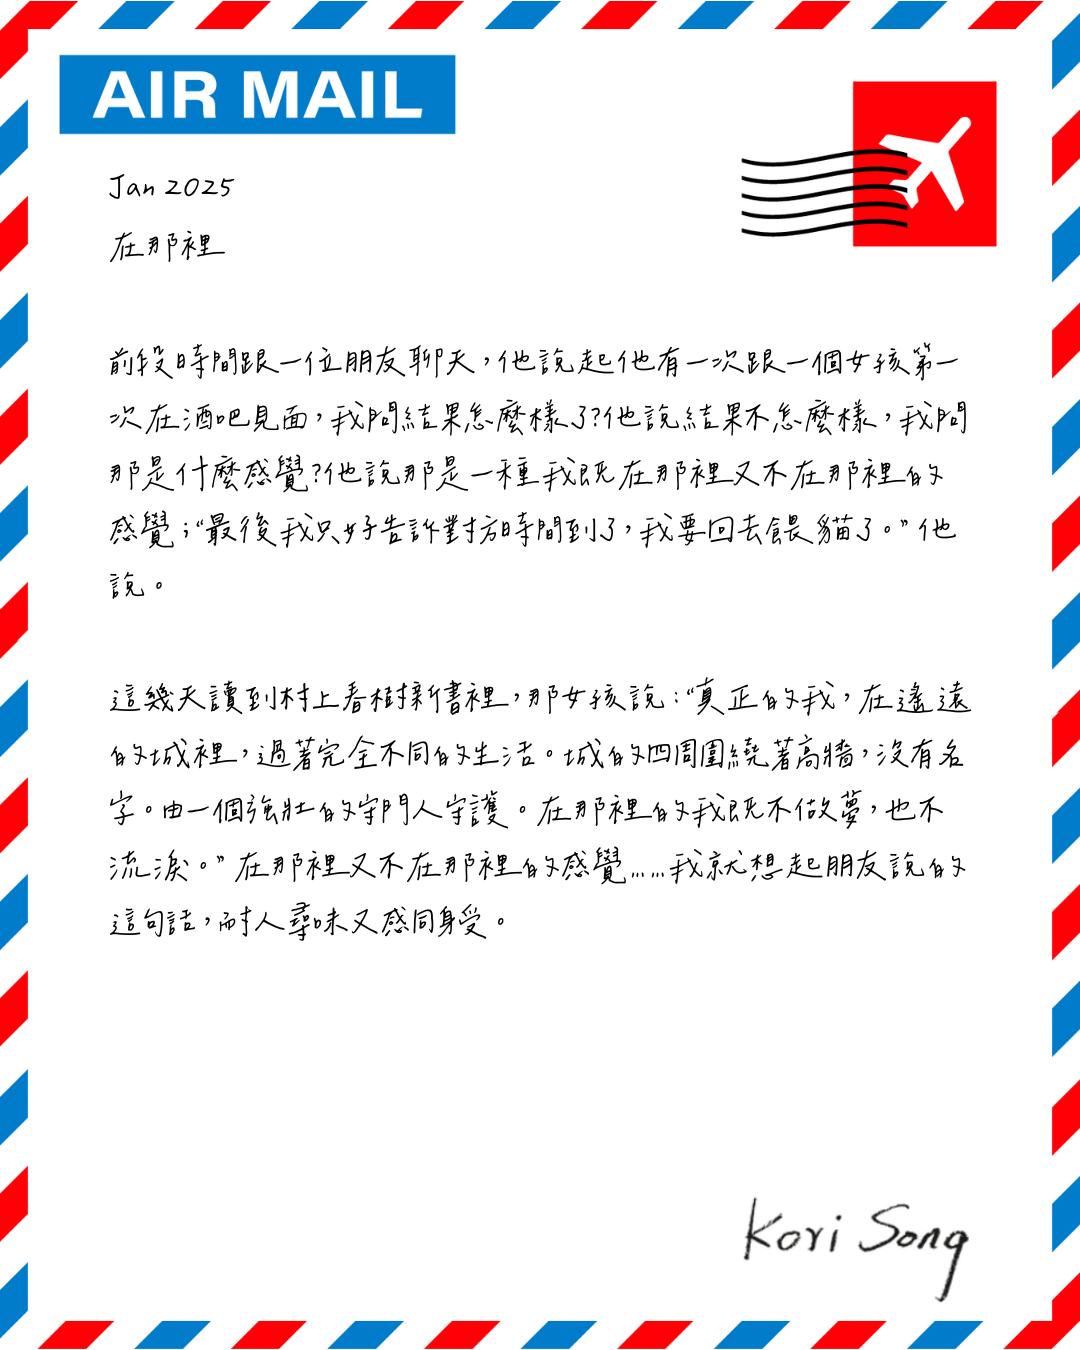 AIR MAIL
Jan 2025
在那裡
前段時間跟一位朋友聊天，他說起他有一次跟一個女孩第一
次在酒吧見面，我問結果怎麼樣了?他說結果不怎麼樣，我問
那是什麼感覺?他說那是一種我既在那裡又不在那裡的
感覺；“最後我只好告訴對方時間到了，我要回去餵貓了。”他
說。
這幾天讀到村上春樹新書裡，那女孩說：“真正的我，在遙遠
的城裡，過著完全不同的生活。城的四周圍繞著高牆，沒有名
字。由一個強壯的守門人守護。在那裡的我既不做夢，也不
流淚。”在那裡又不在那裡的感覺……我就想起朋友說的
這句話，耐人尋味又感同身受。
Kori Song